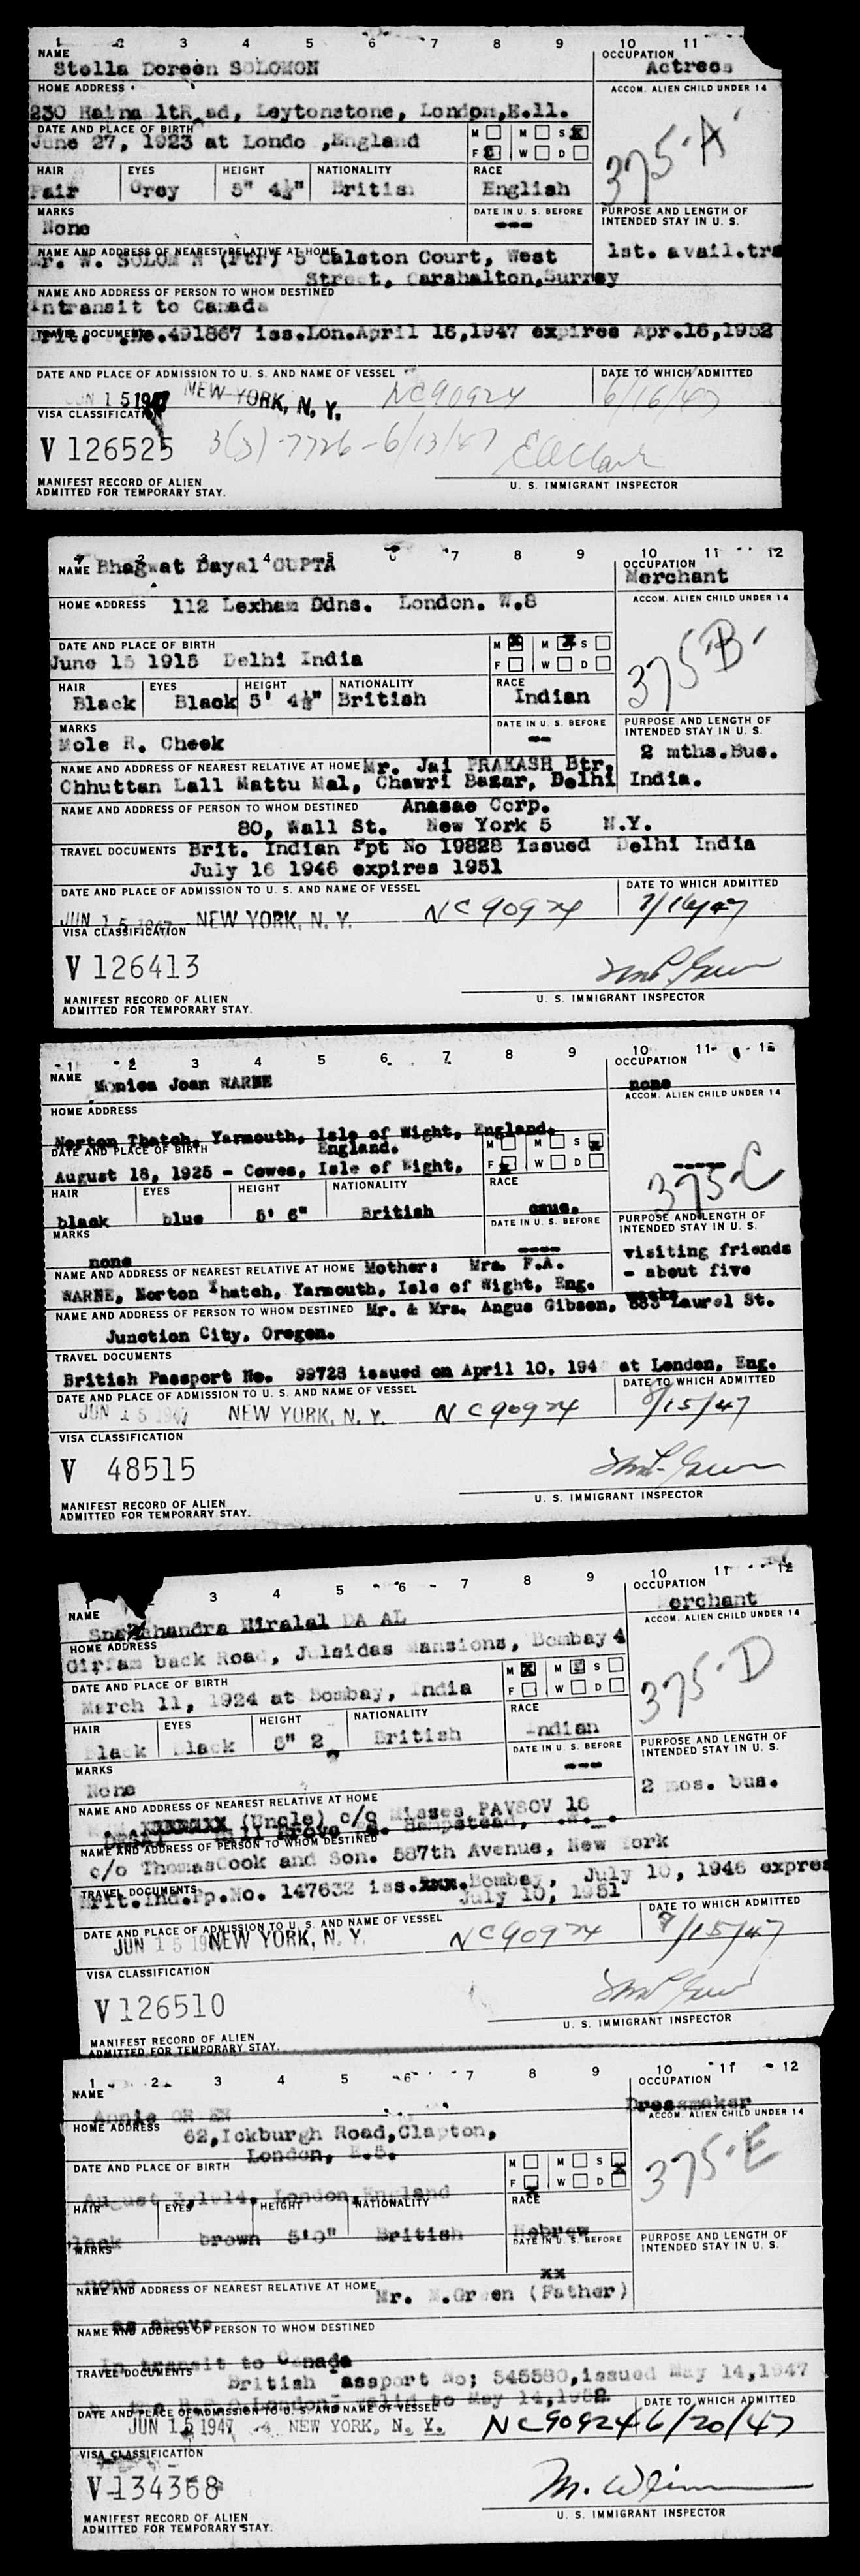 1 2 3 4 5 6 7 8 9 10 11
NAME OCCUPATION
Stella Doreen SOLOMON Actress
HOME ADDRESS ACCOM. ALIEN CHILD UNDER 14
230 Leytonstone, London,E.11.
375-A
DATE AND PLACE OF BIRTH M M S X
June 27, 1923 at Londo ,England F X W D
HAIR EYES HEIGHT NATIONALITY RACE
Fair Grey 5" 4½" British English
MARKS DATE IN U. S. BEFORE PURPOSE AND LENGTH OF INTENDED STAY IN U. S.
None --- 1st. avail.tra
NAME AND ADDRESS OF NEAREST RELATIVE AT HOME
Mr. W. SOLOM N (Ftr) 5 Calston Court, West
Street, Carshalton,Surrey
NAME AND ADDRESS OF PERSON TO WHOM DESTINED
Intransit to Canada
TRAVEL DOCUMENTS
Brit. No.491867 iss.Lon.April 16,1947 expires Apr.16,1952
DATE AND PLACE OF ADMISSION TO U. S. AND NAME OF VESSEL DATE TO WHICH ADMITTED
JUN 15 1947 NEW YORK, N. Y. NC90924 6/16/47
VISA CLASSIFICATION
V 126525 3(3)-7726-6/13/47
MANIFEST RECORD OF ALIEN
ADMITTED FOR TEMPORARY STAY. U. S. IMMIGRANT INSPECTOR
1 2 3 4 5 6 7 8 9 10 11 12
NAME Bhagwat Dayal GUPTA OCCUPATION
Merchant
HOME ADDRESS 112 Lexham Gdns. London. W.8 ACCOM. ALIEN CHILD UNDER 14
375-B-
DATE AND PLACE OF BIRTH M X M X S
June 15 1915 Delhi India F W D
HAIR EYES HEIGHT NATIONALITY RACE
Black Black 5' 4½" British Indian
MARKS DATE IN U. S. BEFORE PURPOSE AND LENGTH OF INTENDED STAY IN U. S.
Mole R. Cheek -- 2 mths.Bus.
NAME AND ADDRESS OF NEAREST RELATIVE AT HOME Mr. Jai PRAKASH Btr.
Chhuttan Lall Mattu Mal, Chawri Bazar, Delhi India.
NAME AND ADDRESS OF PERSON TO WHOM DESTINED Anasae Corp.
80, Wall St. New York 5 N.Y.
TRAVEL DOCUMENTS Brit. Indian Ppt No 19828 issued Delhi India
July 16 1946 expires 1951
DATE AND PLACE OF ADMISSION TO U. S. AND NAME OF VESSEL DATE TO WHICH ADMITTED
JUN 15 1947 NEW YORK, N. Y. NC90924
VISA CLASSIFICATION
V 126413
MANIFEST RECORD OF ALIEN
ADMITTED FOR TEMPORARY STAY. U. S. IMMIGRANT INSPECTOR
1 2 3 4 5 6 7 8 9 10 11 12
NAME Monica Joan WARNE OCCUPATION
none
HOME ADDRESS ACCOM. ALIEN CHILD UNDER 14
Norton Thatch, Yarmouth, Isle of Wight, England.
----
375-C
DATE AND PLACE OF BIRTH England. M M S X
August 18, 1925 - Cowes, Isle of Wight, F X W D
HAIR EYES HEIGHT NATIONALITY RACE
black blue 5' 6" British cauc.
MARKS DATE IN U. S. BEFORE PURPOSE AND LENGTH OF INTENDED STAY IN U. S.
none ---- visiting friends
- about five
weeks
NAME AND ADDRESS OF NEAREST RELATIVE AT HOME Mother: Mrs. F.A.
WARNE, Norton Thatch, Yarmouth, Isle of Wight, Eng.
NAME AND ADDRESS OF PERSON TO WHOM DESTINED Mr. & Mrs. Angus Gibson, 883 Laurel St.
Junction City, Oregon.
TRAVEL DOCUMENTS
British Passport No. 99728 issued on April 10, 194 at London, Eng.
DATE AND PLACE OF ADMISSION TO U. S. AND NAME OF VESSEL DATE TO WHICH ADMITTED
JUN 15 1947 NEW YORK, N. Y. NC90924 8/15/47
VISA CLASSIFICATION
V 48515
MANIFEST RECORD OF ALIEN
ADMITTED FOR TEMPORARY STAY. U. S. IMMIGRANT INSPECTOR
3 4 5 6 7 8 9 10 11 12
NAME OCCUPATION
Hiralal DA AL erchant
HOME ADDRESS ACCOM. ALIEN CHILD UNDER 14
back Road, Julsidas Mansions, Bombay 4
375-D
DATE AND PLACE OF BIRTH M X M S
March 11, 1924 at Bombay, India F W D
HAIR EYES HEIGHT NATIONALITY RACE
Black Black 5" 2 British Indian
MARKS DATE IN U. S. BEFORE PURPOSE AND LENGTH OF INTENDED STAY IN U. S.
None --- 2 mos. bus.
NAME AND ADDRESS OF NEAREST RELATIVE AT HOME
(Uncle) c/o Misses PAVSOV 16
DESAI Grove Hampstead,
NAME AND ADDRESS OF PERSON TO WHOM DESTINED
c/o ThomasCook and Son. 587th Avenue, New York
TRAVEL DOCUMENTS
Brit.Ind.Pp.No. 147632 iss.xxx.Bombay, July 10, 1946 expres
July 10, 1951
DATE AND PLACE OF ADMISSION TO U. S. AND NAME OF VESSEL DATE TO WHICH ADMITTED
JUN 15 19 NEW YORK, N. Y. NC90924
VISA CLASSIFICATION
V 126510
MANIFEST RECORD OF ALIEN
ADMITTED FOR TEMPORARY STAY. U. S. IMMIGRANT INSPECTOR
1 2 3 4 5 6 7 8 9 10 11 12
NAME OCCUPATION
Annie Dressmaker
HOME ADDRESS 62,Ickburgh Road,Clapton, ACCOM. ALIEN CHILD UNDER 14
London, E.5.
375-E
DATE AND PLACE OF BIRTH M M S X
August 3,1914, London,England F X W D
HAIR EYES HEIGHT NATIONALITY RACE
black brown 5'0" British Hebrew
MARKS DATE IN U. S. BEFORE PURPOSE AND LENGTH OF INTENDED STAY IN U. S.
none xx
NAME AND ADDRESS OF NEAREST RELATIVE AT HOME Mr. M.Green (Father)
as above
NAME AND ADDRESS OF PERSON TO WHOM DESTINED
In transit to Canada
TRAVEL DOCUMENTS British assport No; 545580,issued May 14,1947
London valid to May 14,1952
DATE AND PLACE OF ADMISSION TO U. S. AND NAME OF VESSEL DATE TO WHICH ADMITTED
JUN 15 1947 NEW YORK, N. Y. NC90924 6/20/47
VISA CLASSIFICATION
V 134368
MANIFEST RECORD OF ALIEN
ADMITTED FOR TEMPORARY STAY. U. S. IMMIGRANT INSPECTOR